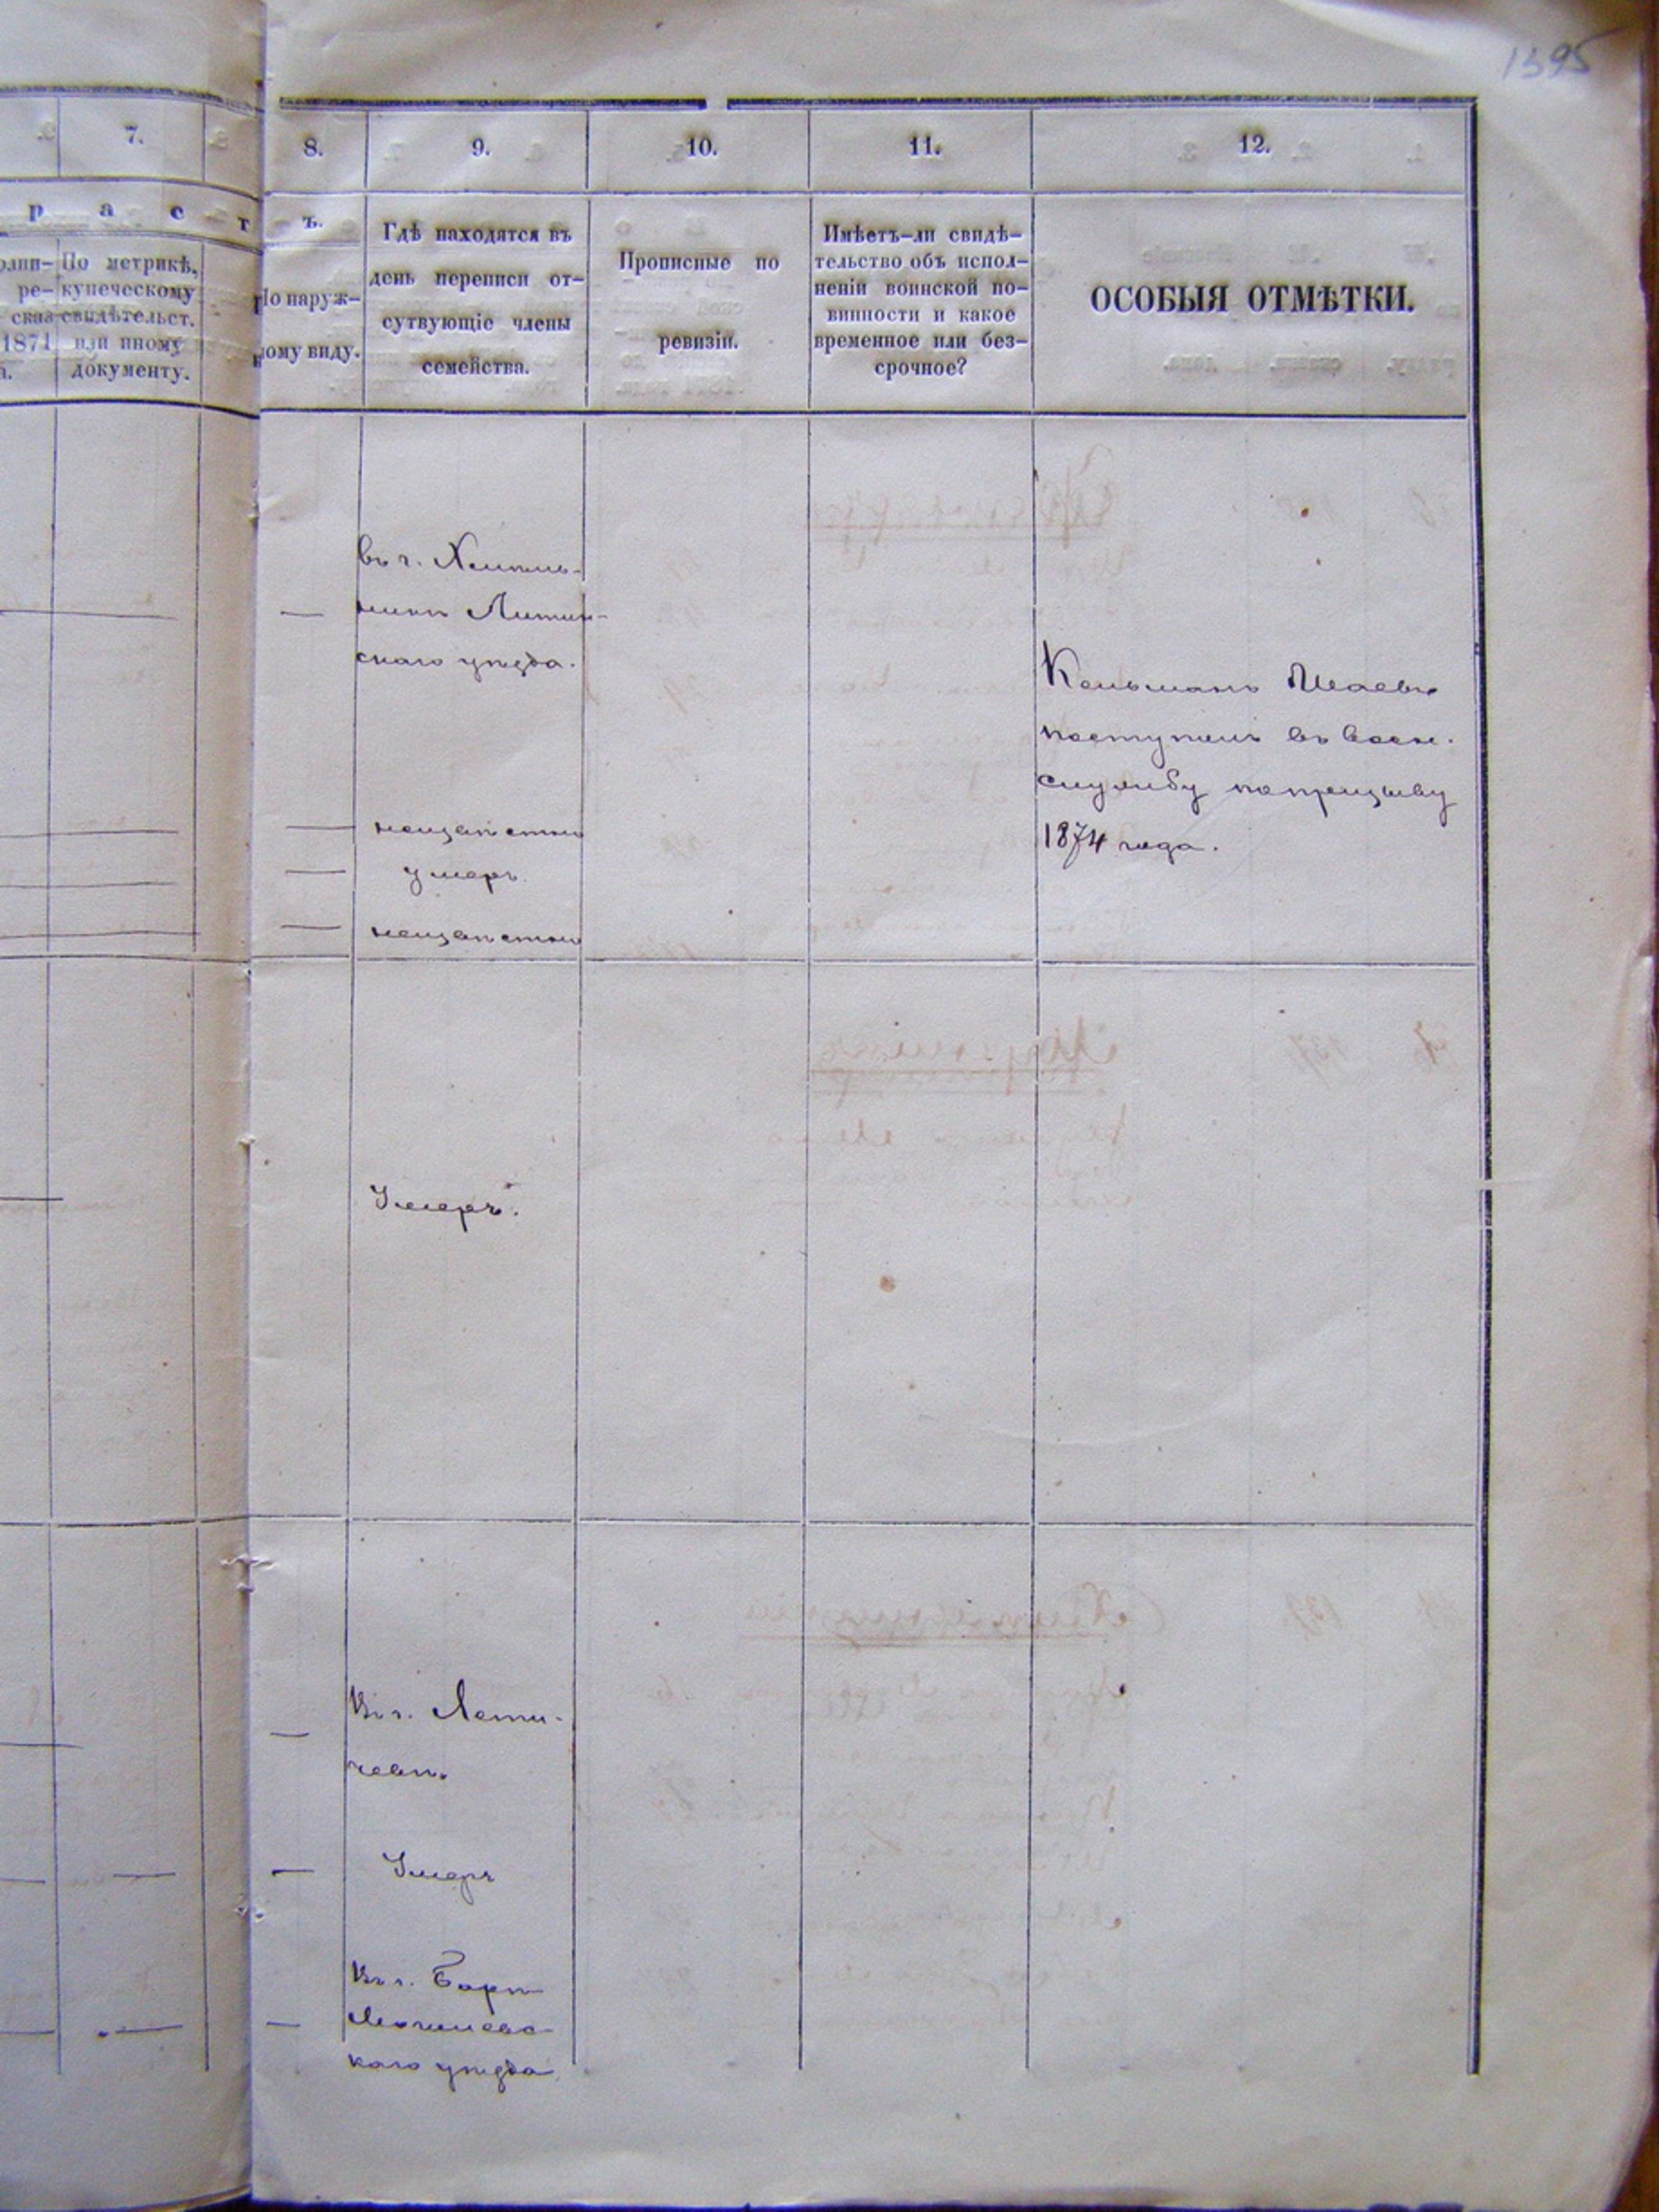 1395
7.
8.
9.
10.
11.
12.
р а с т
ъ.
По метрикѣ,
купеческому
свидѣтельст.
или иному
документу.
ре-
сказ
1871
По наруж-
ному виду.
Гдѣ находятся въ
день переписи от-
сутвующіе члены
семейства.
Прописные по
ревизіи.
Имѣетъ-ли свидѣ-
тельство объ испол-
неніи воинской по-
винности и какое
временное или без-
срочное?
ОСОБЫЯ ОТМѢТКИ.
въ г. Хмѣль-
никѣ Литин-
скаго уѣзда.
Кельманъ Шаевъ
поступилъ въ воен.
службу по призыву
1874 года.
неизвѣстно
умеръ
неизвѣстно
Умеръ.
Въ г. Лети-
чевѣ.
Умеръ
Въ г. Барѣ
Могилевс-
каго уѣзда